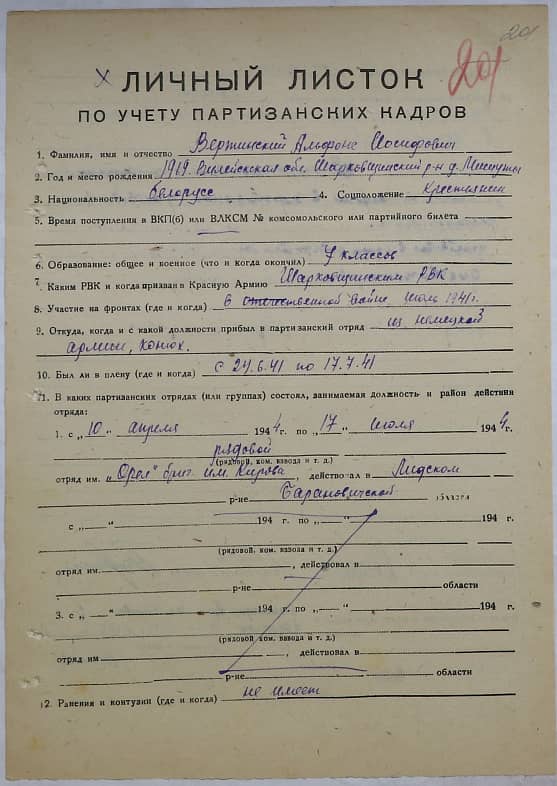 201
201
ЛИЧНЫЙ ЛИСТОК
ПО УЧЕТУ ПАРТИЗАНСКИХ КАДРОВ
1. Фамилия, имя и отчество Вертинский Альфонс Иосифович
2. Год и место рождения 1919. Вилейская обл. Шарковщинский р-н д.
3. Национальность белорусс 4. Соцположение Крестьянин
5. Время поступления в ВКП(б) или ВЛКСМ № комсомольского или партийного билета
6. Образование: общее и военное (что и когда окончил) 4 классов
7. Каким РВК и когда призван в Красную Армию Шарковщинским РВК
8. Участие на фронтах (где и когда) в отечественной войне, июль 1941г.
9. Откуда, когда и с какой должности прибыл в партизанский отряд из немецкой
армии, конюх.
10. Был ли в плену (где и когда) с 24.6.41 по 17.7.41
11. В каких партизанских отрядах (или группах) состоял, занимаемая должность и район действия
отряда:
1. с „10“ апреля 1944 г. по „17“ июля 1944 г.
рядовой
(рядовой, ком. взвода и т. д.)
отряд им. „Орел“ бриг. им. Кирова, действовал в Лидском
р-не Барановичской области
с „ “ 194 г. по „ “ 194 г.
(рядовой, ком. взвода и т. д.)
отряд им. , действовал в
р-не области
3. с „ “ 194 г. по „ “ 194 г.
(рядовой, ком. взвода и т. д.)
отряд им , действовал в
р-не области
12. Ранения и контузии (где и когда) не имеет